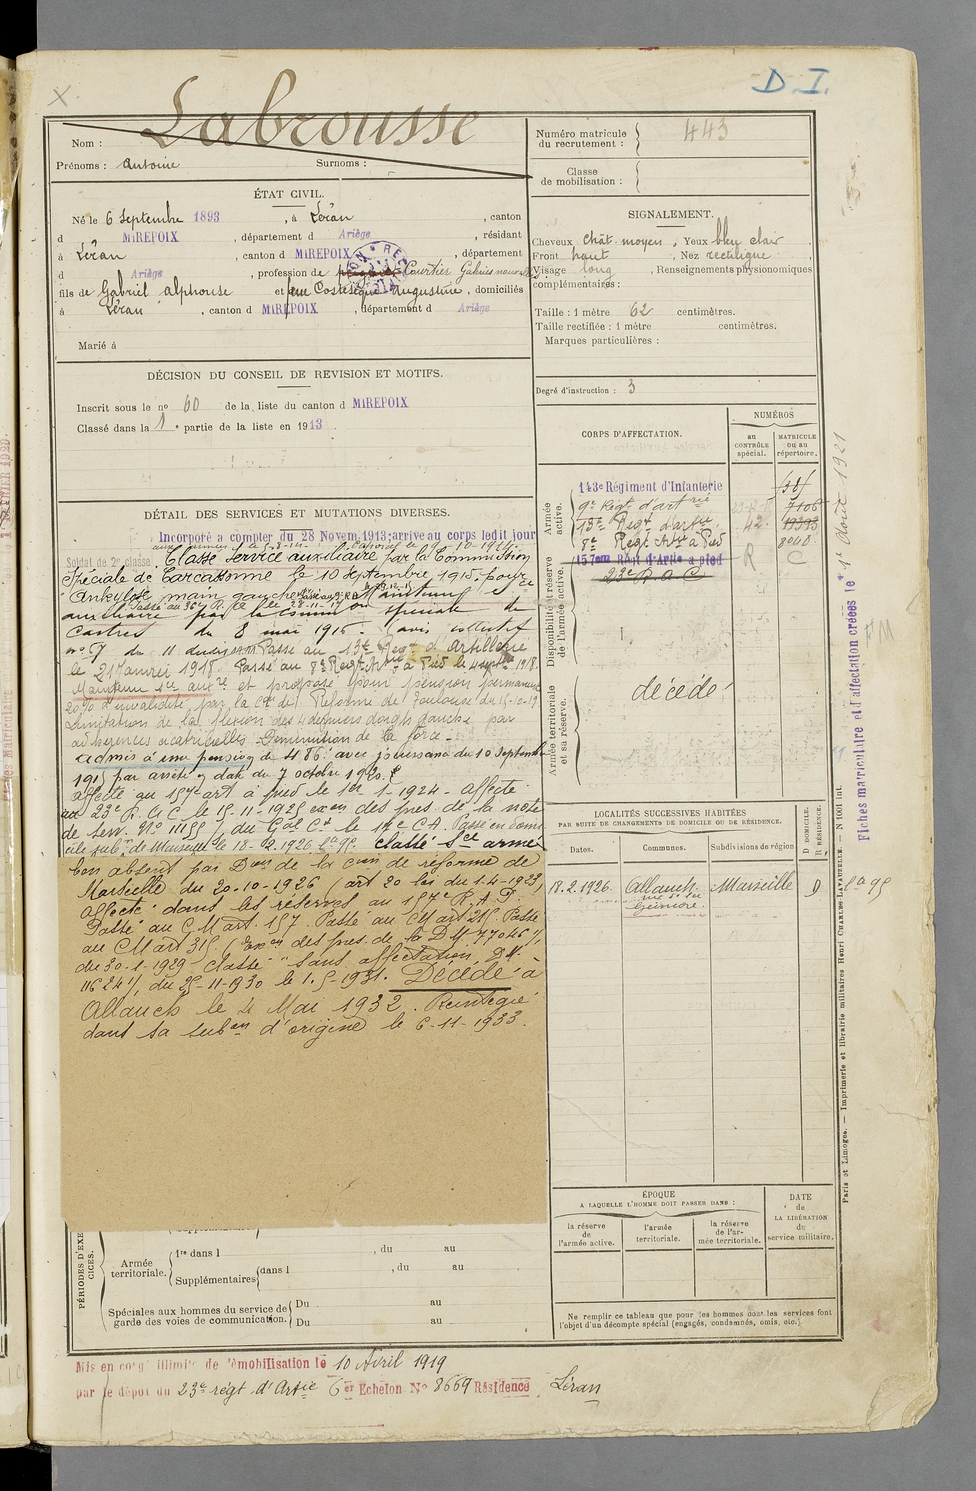 D. I.
Labrousse
Nom :
Prénoms : Antoine Surnoms :
ÉTAT CIVIL.
Né le 6 Septembre 1893, à Léran, canton
d MIREPOIX, département d Ariège, résidant
à Léran, canton d MIREPOIX, département
d Ariège, profession de Courtier
fils de Gabriel Alphonse et feue Costesèque Augustine, domiciliés
à Léran, canton d MIREPOIX, département d Ariège
Marié à
DÉCISION DU CONSEIL DE REVISION ET MOTIFS.
Inscrit sous le nº 60 de la liste du canton d MIREPOIX
Classé dans la 1e partie de la liste en 1913.
DÉTAIL DES SERVICES ET MUTATIONS DIVERSES.
Incorporé à compter du 28 Novem. 1913; arrivé au corps ledit jour
Soldat de 2e classe.
Classé service auxiliaire par la Commission
Spéciale de Carcassonne le 10 Septembre 1915 pour
"Ankylose main gauche" Maintenu sce
auxiliaire par la Comm on spéciale de
Passé au 36e R.
Castres du 8 mai 1916. (avis collectif
nº 7 du 11 dudit) Passé au 13e Régt d'Artillerie
le 21 Janvier 1918. Passé au 8e Régt Artie à Pied le 4 septbre 1918.
Maintenu sce auxre et proposé pour pension permanente
20% d'invalidité, par la Con de Réforme de Toulouse du 15-10-19
Limitation de la flexion des 4 derniers doigts gauche par
adhérences cicatricielles. Diminution de la force.
Admis à une pension de 486f avec jouissance du 10 Septembre
1919 par arrêté en date du 7 octobre 1920.
Affecté au 157e art à pied le 1er-1-1924. Affecté
au 23e R.A.C. le 15-11-1925 exon des pres. de la note
de serv. Nº 11155/1 du Gal Ct le 17e C.A. Passé en domi
cile subn de Marseille le 18-2-1926. Classé Sce armé
bon absent par Don de la Con de réforme de
Marseille du 20-10-1926 (art 20 loi du 1-4-1923)
Affecté dans les réserves au 157e R.A.P.
Passé au C.M art. 157. Passé au CM art 215. Passé
au C M art 315. (Exon des pres. de la D.M 7704 6/1
du 30-1-1929. Classé "Sans affectation" D.M.
11624/1, du 25-11-1930 le 1-5-1931. Décédé à
Allauch le 4 Mai 1932. Réintégré
dans sa subon d'origine le 6-11-1933.
PÉRIODES D'EXERCICES.
Armée territoriale.
1re dans l , du au
Supplémentaires dans l , du au
Spéciales aux hommes du service de garde des voies de communication.
Du au
Du au
Mis en congé illimité de démobilisation le 10 Avril 1919
par le dépôt du 23e régt d'Artie 6er Echelon Nº 8669 Résidence Léran
Numéro matricule du recrutement : 443
Classe de mobilisation :
SIGNALEMENT.
Cheveux chât. moyen, Yeux bleu clair
Front haut, Nez rectiligne,
Visage long, Renseignements physionomiques
complémentaires :
Taille : 1 mètre 62 centimètres.
Taille rectifiée : 1 mètre centimètres.
Marques particulières :
Degré d'instruction : 3
CORPS D'AFFECTATION.
NUMÉROS
au CONTRÔLE spécial.
MATRICULE ou au répertoire.
Armée active.
143e Régiment d'Infanterie
9e Régt d'artrie 7106
13e Régt d'artie 42
8e Régt Artie à Pied
157eme Régt d'Artie à pied R C
23e R A C
Disponibilité et réserve de l'armée active.
Armée territoriale et sa réserve.
décédé
LOCALITÉS SUCCESSIVES HABITÉES
PAR SUITE DE CHANGEMENTS DE DOMICILE OU DE RÉSIDENCE.
Dates. Communes. Subdivisions de région
D DOMICILE. R RÉSIDENCE.
18.2.1926 Allauch Marseille D
ÉPOQUE
A LAQUELLE L'HOMME DOIT PASSER DANS :
la réserve de l'armée active.
l'armée territoriale.
la réserve de l'armée territoriale.
DATE de LA LIBÉRATION du service militaire.
Ne remplir ce tableau que pour les hommes dont les services font
l'objet d'un décompte spécial (engagés, condamnés, omis, etc.)
Fiches matriculaire et d'affectation créées le 1er Août 1921
Paris et Limoges. — Imprimerie et librairie militaires Henri CHARLES-LAVAUZELLE. — N 1001 int.